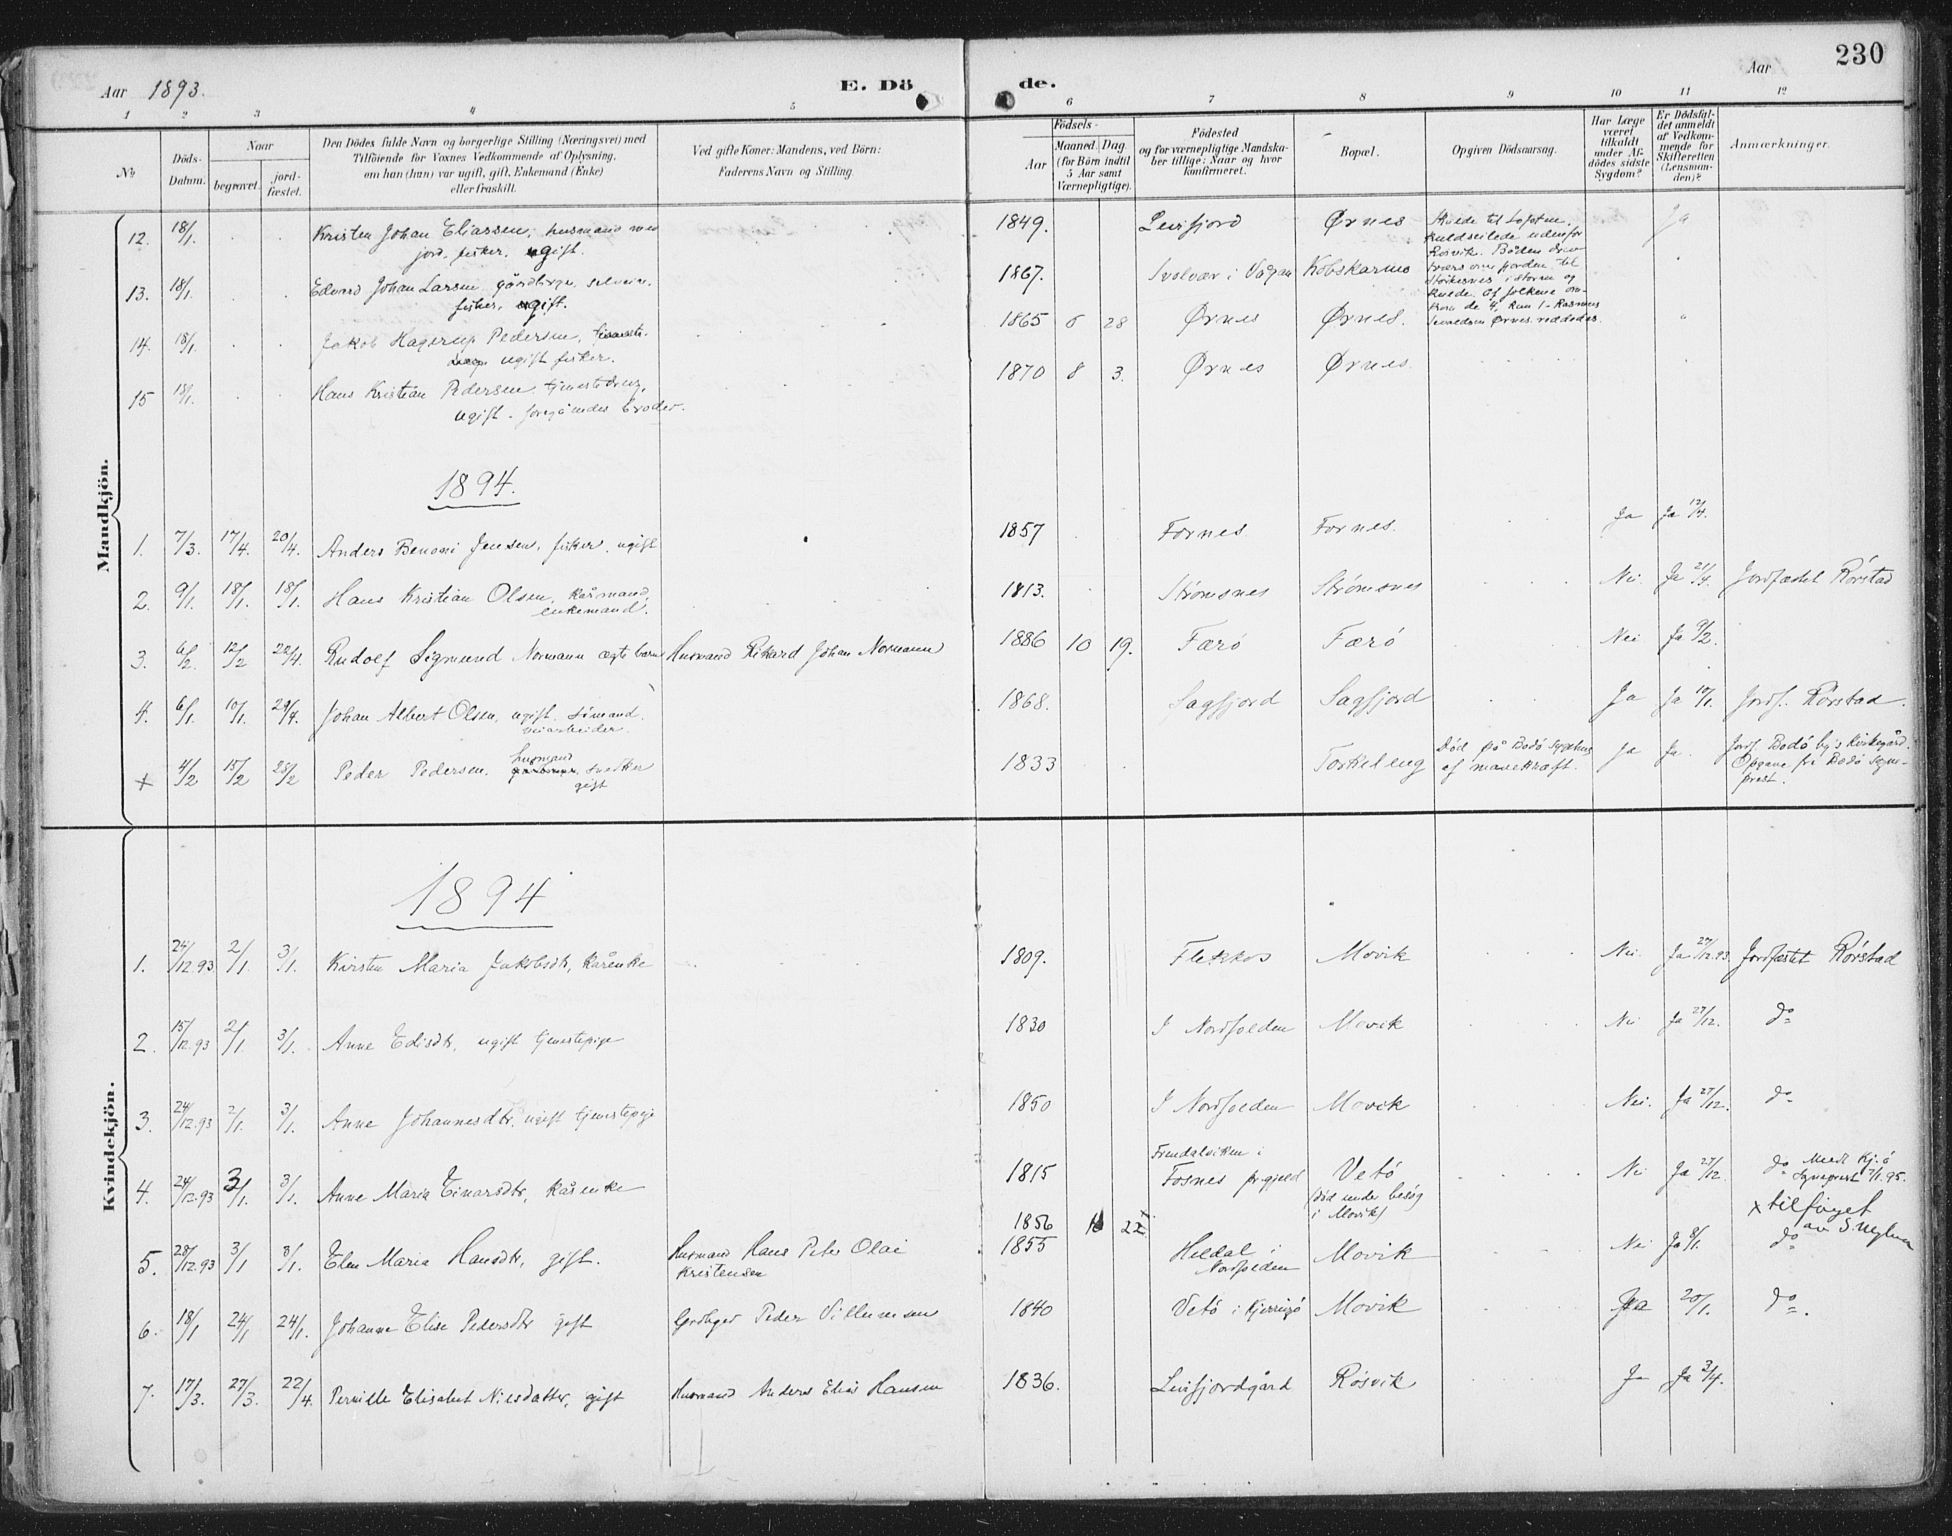 230
Aar 1893. E. Dö de. Aar
1 2 3 4 5 6 7 8 9 10 11 12
No
Döds-Datum.
Naar
begravet.
jord-fæstet.
Den Dödes fulde Navn og borgerlige Stilling (Næringsvei) med
Tilföiende for Voxnes Vedkommende af Oplysning,
om han (hun) var ugift, gift, Enkemand (Enke)
eller fraskilt.
Ved gifte Koner: Mandens, ved Börn:
Faderens Navn og Stilling.
Födsels-
Aar
Maaned. Dag
(for Börn indtil
5 Aar samt
Værnepligtige).
Födested
og for værnepligtige Mandska-
ber tillige: Naar og hvor
konfirmeret.
Bopæl.
Opgiven Dödsaarsag.
Har Læge
været
tilkaldt
under Af-
dödes sidste
Sygdom?
Er Dödsfal-
det anmeldt
af Vedkom-
mende for
Skifteretten
(Lensman-
den)?
Anmærkninger.
Mandkjön.
12. 18/1. Kristen Johan Eliassen, husmand med 1849. Leifjord Ørnes Ja
jord, fisker, ugift.
13. 18/1. Edvard Johan Larsen 1867. Svolvær i Vågan Kobskarmo
fisker, ugift.
14. 18/1. Jakob Hagerup Pedersen, 1865 6 28 Ørnes Ørnes.
ugift fisker.
15 18/1. Hans Kristian Pedersen tjenestedreng, 1870 8 3. Ørnes Ørnes
ugift. foregåendes broder.
til Lofoten,
kuldseilede udenfor
Rosvik. Båden drev
tværs over fjorden til
i storm og
af folkene om-
kom de 4, kun 1 - Rasmus
Ørnes reddedes.
1894.
1. 7/3. 17/4. 20/4. Anders Benoni Jensen, fisker, ugift 1857 Fornes Fornes. Ja Ja 12/4.
2. 9/1. 18/1. 18/1. Hans Kristian Olsen, kårmand, 1813. Strømsnes Strømsnes Nei. Ja 21/4. Jordfæstet Rörstad
enkemand.
3. 6/2. 12/2 22/4. Rudolf Sigmund Normann ægte barn Husmand Rikard Johan Normann 1886 10 19. Færö Færö Nei Ja 9/2.
4. 6/1. 10/1. 29/4. Johan Albert Olsen, ugift. sömand. 1868. Sagfjord Sagfjord Ja Ja 10/1. Jordf. Rörstad.
veiarbeider.
+ 4/2 15/2 25/2 Peder Pedersen. husmand 1833 Torkeleng Död på Bodö sygehus Ja Ja. Jordf. Bodö by's kirkegård.
gift af mavekræft. Opgave fra Bodö sogne-
prest.
Kvindekjön.
1894
1. 24/12.93 2/1. 3/1. Kirsten Maria Jakobsdtr, kårenke 1809. Flekkos Movik Nei. Ja 27/12.93. Jordfæstet Rörstad
2. 15/12.93 2/1. 3/1. Anne Edisdtr, ugift tjenestepige 1830 I Nordfolden Movik Nei Ja 27/12. do
3. 24/12.93 2/1. 3/1. Anne Johannesdtr, ugift tjenestepige 1850 I Nordfolden Movik Nei. Ja 27/12. do
4. 24/12.93 3/1. 3/1. Anne Maria Einarsdtr, kårenke 1815 i Fosnes pr.gjeld Vetö Nei Ja 27/12. do
(död under besög
i Movik)
x tilföiet
1856 22
5. 28/12.93 3/1 3/1. Elen Maria Hansdtr, gift. Husmand Hans Peter Olai 1855 Heldal i Movik Nei Ja 8/1. do
Kristensen Nordfolden
6. 18/1 24/1 24/1. Johanne Elise Pedersdtr gift Peder Villumsen 1840 Vetö i Kjerringö Movik Ja 20/1. do.
7. 17/3. 27/3. 22/4. Pernille Elisabet Nilsdatter, gift Husmand Anders Elias Hansen 1836. Leifjordgård Rösvik Ja Ja 2/4.